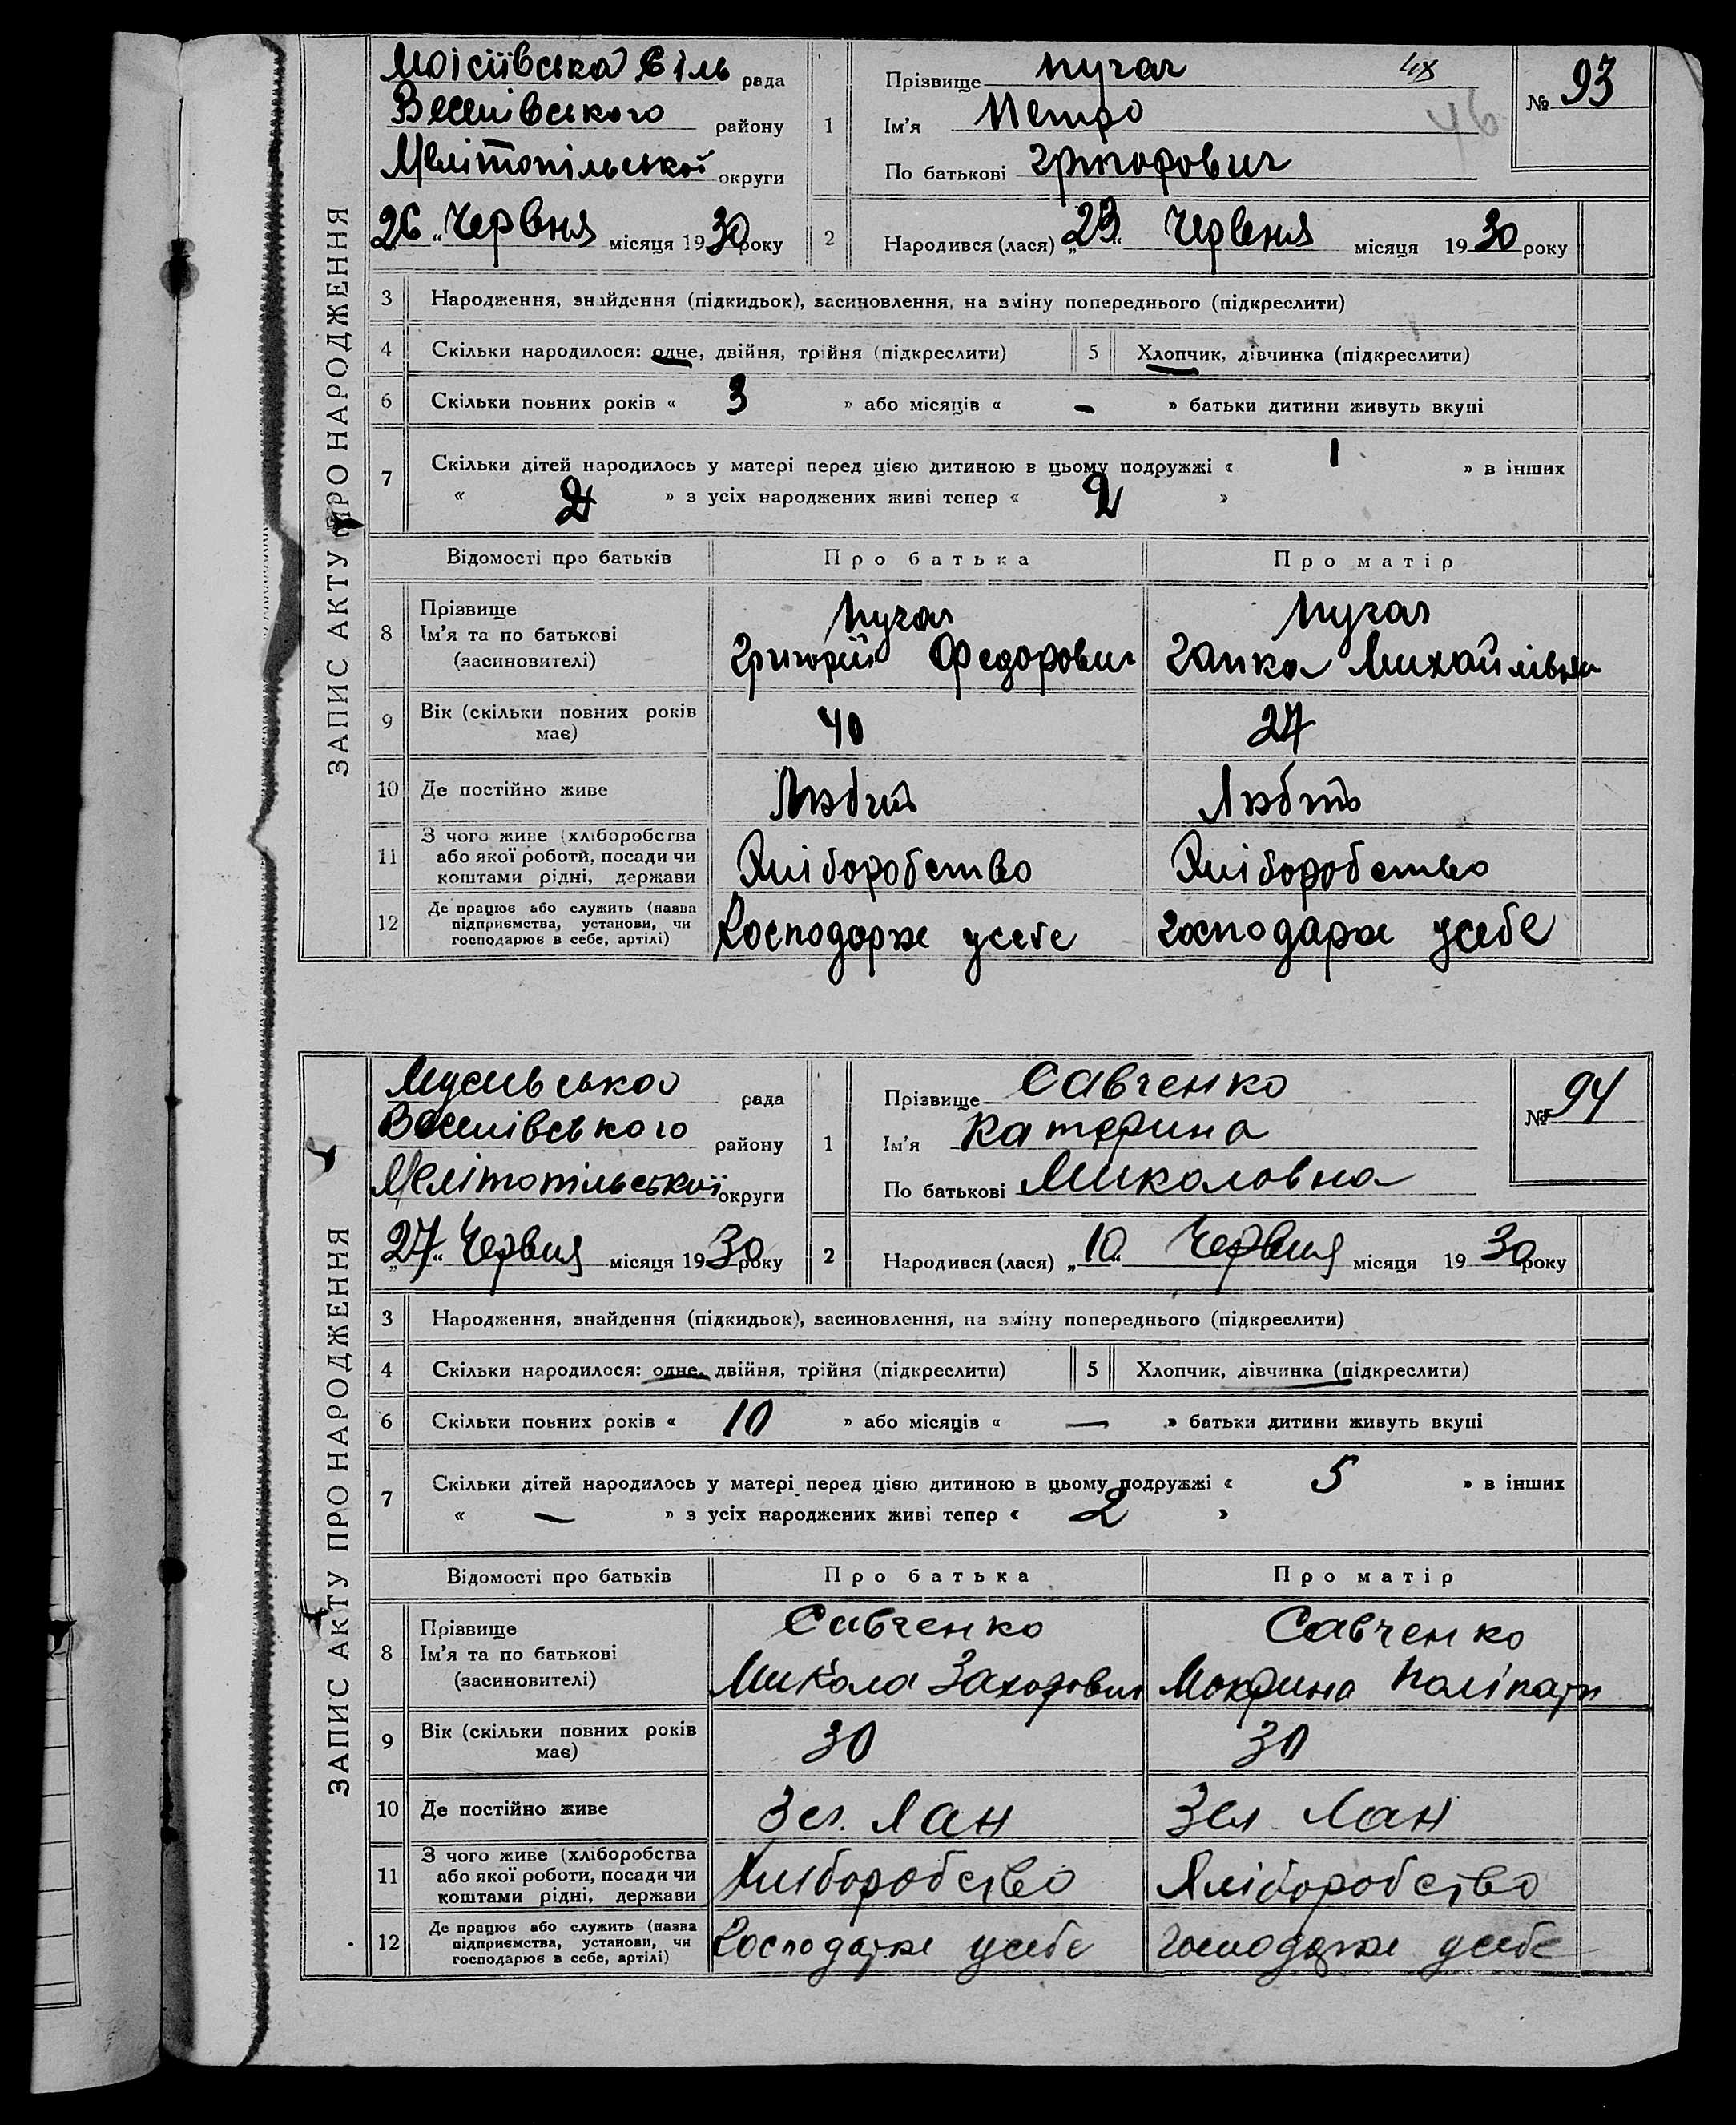 ЗАПИС АКТУ ПРО НАРОДЖЕННЯ
Моісіївська сіль рада
Веселівського району
Мелітопільської округи
26 „ Червня місяця 1930 року
1 Прізвище Пугач
Ім'я Петро
По батькові Григорович
№ 93
46
2 Народився (лася) „23“ Червня місяця 1930 року
3 Народження, знайдення (підкидьок), засиновлення, на зміну попереднього (підкреслити)
4 Скільки народилося: одне, двійня, трійня (підкреслити) 5 Хлопчик, дівчинка (підкреслити)
6 Скільки повних років « 3 » або місяців « - » батьки дитини живуть вкупі
7 Скільки дітей народилось у матері перед цією дитиною в цьому подружжі « 1 » в інших
« 2 » з усіх народжених живі тепер « 2 »
Відомості про батьків Про батька Про матір
8 Прізвище Пугач Пугач
Ім'я та по батькові Григорий Федорович Гапка Михайлівна
(засиновителі)
9 Вік (скільки повних років має) 40 27
10 Де постійно живе
11 З чого живе (хліборобства або якої роботи, посади чи коштами рідні, держави Хліборобство Хліборобство
12 Де працює або служить (назва підприємства, установи, чи господарює в себе, артілі) Господарже усебе господарже усебе
ЗАПИС АКТУ ПРО НАРОДЖЕННЯ
рада
Веселівського району
Мелітопільської округи
„27“ Червня місяця 1930 року
1 Прізвище Савченко
Ім'я Катерина
По батькові Миколовна
№ 94
2 Народився (лася) „10“ Червня місяця 1930 року
3 Народження, знайдення (підкидьок), засиновлення, на зміну попереднього (підкреслити)
4 Скільки народилося: одне, двійня, трійня (підкреслити) 5 Хлопчик, дівчинка (підкреслити)
6 Скільки повних років « 10 » або місяців « — » батьки дитини живуть вкупі
7 Скільки дітей народилось у матері перед цією дитиною в цьому подружжі « 5 » в інших
« — » з усіх народжених живі тепер « 2 »
Відомості про батьків Про батька Про матір
8 Прізвище Савченко Савченко
Ім'я та по батькові Микола Заходович Мокрина Полікарп
(засиновителі)
9 Вік (скільки повних років має) 30 30
10 Де постійно живе Зел. Лан Зел Лан
11 З чого живе (хліборобства або якої роботи, посади чи коштами рідні, держави Хліборобство Хліборобство
12 Де працює або служить (назва підприємства, установи, чи господарює в себе, артілі) Господарже усебе господарже усебе